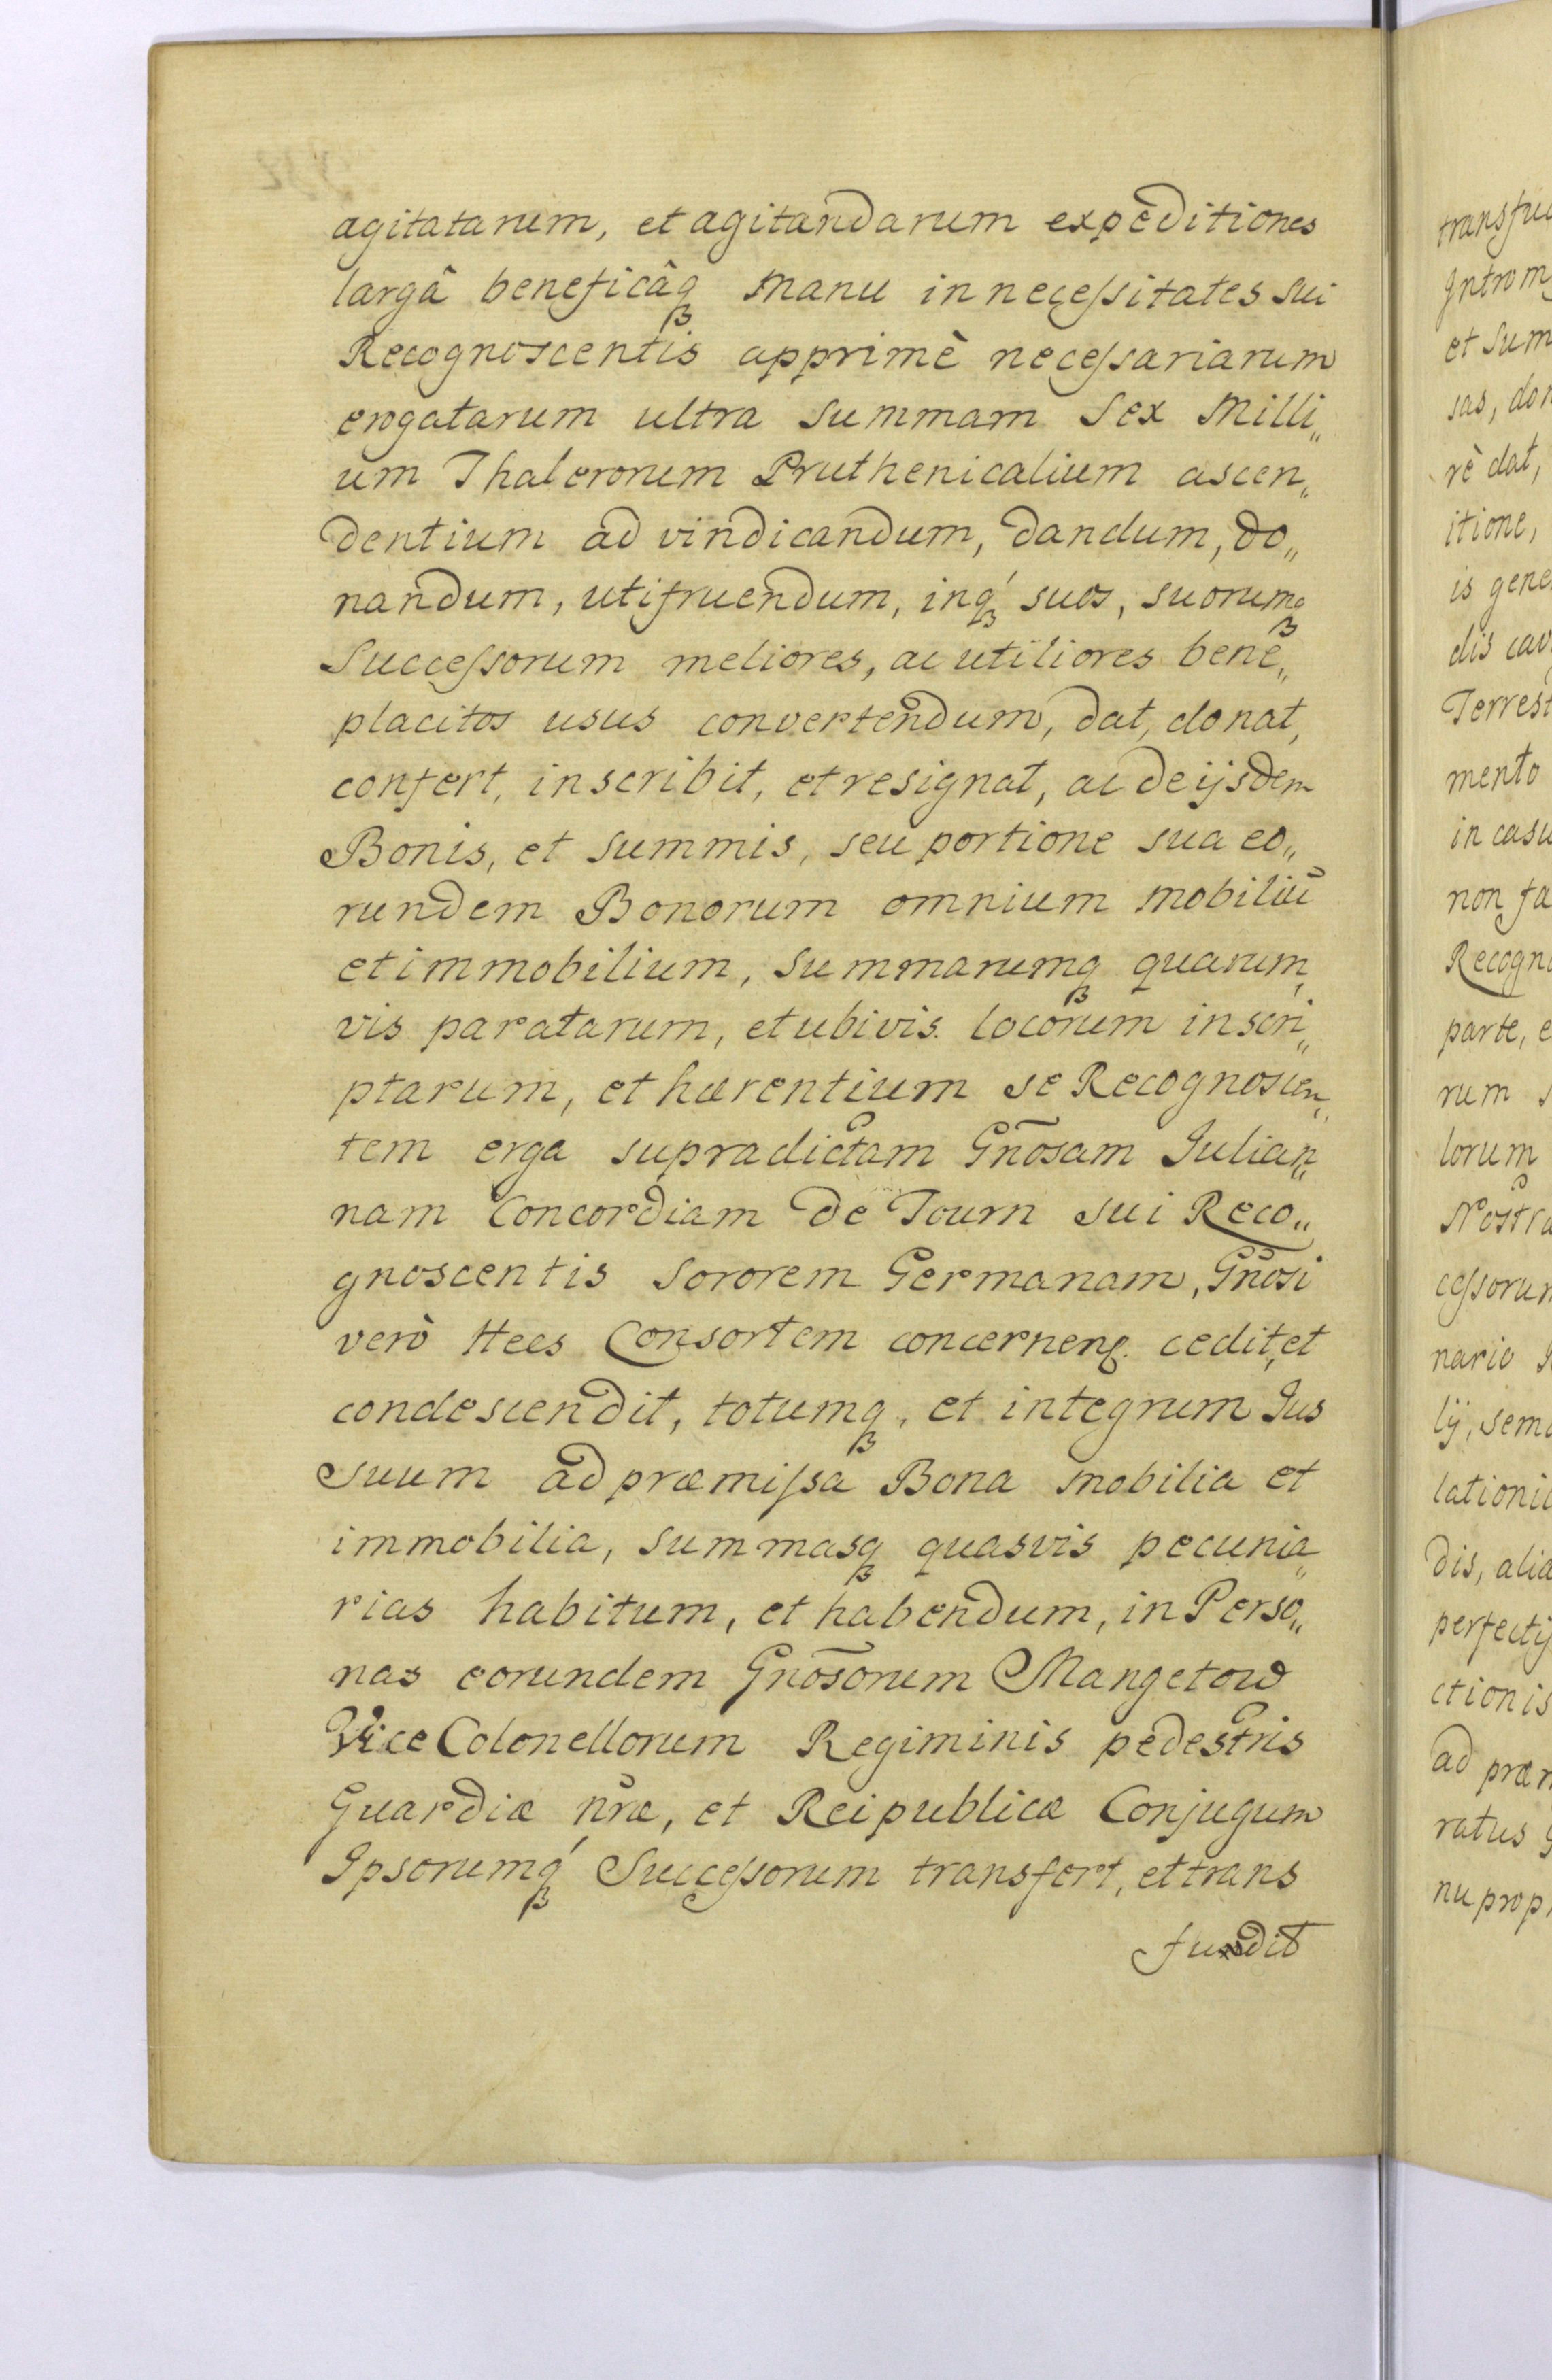 agitatarum, et agitandarum expeditiones
largâ beneficâq₃ manu in necessitates sui
Recognoscentis apprimè necessariarum
erogatarum ultra summam Sex Milli„
um Thalerorum Pruthenicalium ascen„
dentium ad vindicandum, dandum, do„
nandum, utifruendum, inq₃ suos, suorumq₃
Successorum meliores, ac utiliores bene„
placitos usus convertendum, dat, donat,
confert, inscribit, et resignat, ac de ijsdem
Bonis, et summis, seu portione sua eo„
rundem Bonorum omnium mobiliũ
et immobilium, summarumq₃ quarum„
vis paratarum, et ubivis locorum inscri„
ptarum, et hærentium se Recognoscen„
tem erga supradictam Gñosam Julian„
nam Concordiam de Tourn sui Reco„
gnoscentis Sororem Germanam, Gñosi
verò Hees Consortem concernen̄. cedit, et
condescendit, totumq₃, et integrum Jus
suum ad præmissa Bona mobilia et
immobilia, summasq₃ quasvis pecunia„
rias habitum, et habendum, in Perso„
nas eorundem Gñosorum Mangetow
Vice Colonellorum Regiminis pedestris
Guardiæ nr̃æ, et Reipublicæ Conjugum
Ipsorumq₃ Successorum transfert, et trans
fundit
transfu
Introm
et sum
sas, don
rè dat,
itione,
is gene
dis cav
Terrest
mento
in casu
non fa
Recogno
parte, e
rum s
lorum
Nostra
cessorum
nario
lij, sem
lationi
dis, alia
perfecti
ctionis
ad præm
ratus
nu prop